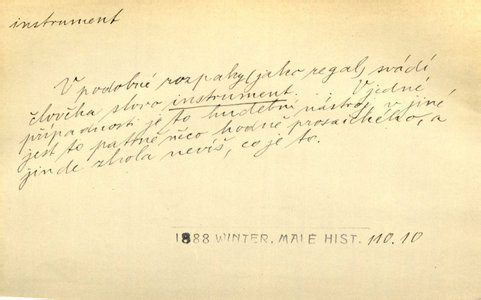 instrument
V podobné rozpaky (jako regal) svádí
člověka slovo instrument. . . . V jedné
případnosti je to hudební nástroj, v jiné
jest to patrně něco hodně prosaického, a
jinde zhola nevíš, co je to.
1888 WINTER, MALÉ HIST. 110.10